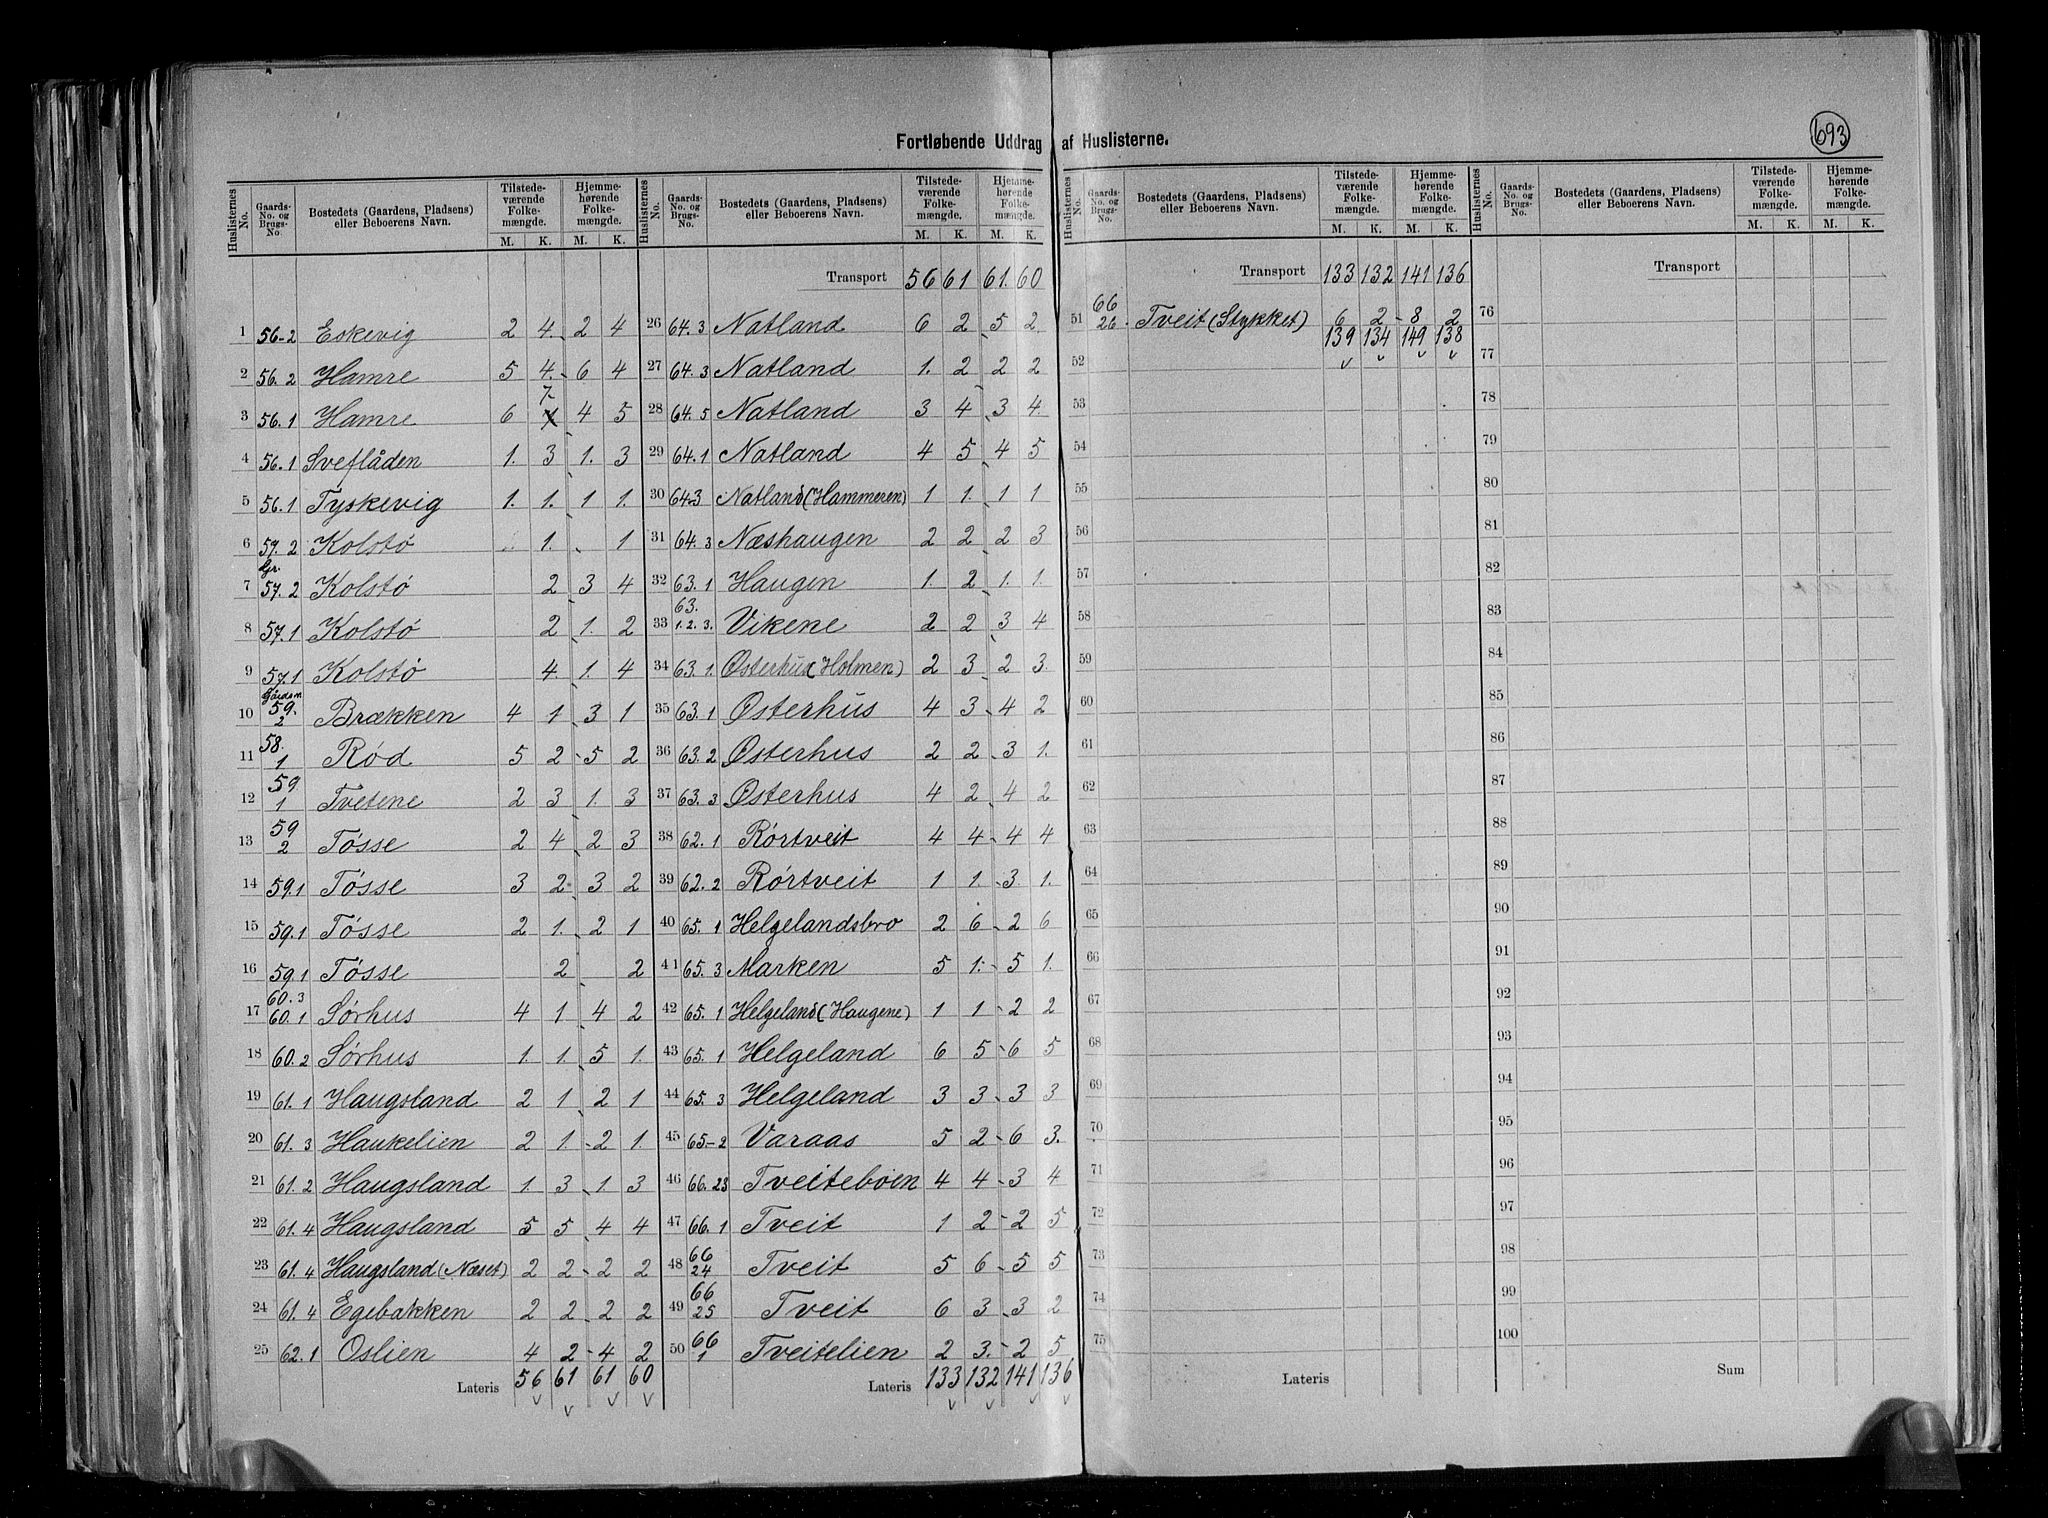 693
Fortløbende Uddrag af Huslisterne.
Huslisternes No. Gaards-No. og Brugs-No. Bostedets (Gaardens, Pladsens) eller Beboerens Navn. Tilstedeværende Folkemængde. M. K. Hjemmehørende Folkemængde. M. K.
1 56-2 Eskevig 2 4. 2 4
2 56.2 Hamre 5 4. 6 4
3 56.1 Hamre 6 7 4 5
4 56.1 Sveflåden 1. 3 1. 3
5 56.1 Tyskevig 1. 1. 1 1.
6 57.2 Kolstø 1. 1
7 Gr. 57.2 Kolstø 2 3 4
8 57.1 Kolstø 2 1. 2
9 57.1 Kolstø 4 1. 4
10 Gårdsn 59. 2 Brækken 4 1 3 1
11 58. 1 Rød 5 2 5 2
12 59 1 Tvetene 2 3 1. 3
13 59 2 Tøsse 2 4 2 3
14 59.1 Tøsse 3 2 3 2
15 59.1 Tøsse 2 1. 2 1
16 59.1 Tøsse 2 2
17 60.3 60.1 Sørhus 4 1 4 2
18 60.2 Sørhus 1. 1 5 1.
19 61.1 Haugsland 2 1 2 1
20 61.3 Haukelien 2 1 2 1.
21 61.2 Haugsland 1. 3 1. 3
22 61.4 Haugsland 5 5 4 4
23 61.4 Haugsland (Næset) 2 2 2 2
24 61.4 Egebakken 2 2 2 2
25 62.1 Oslien 4 2 4 2
Lateris 56 61 61 60
Huslisternes No. Gaards-No. og Brugs-No. Bostedets (Gaardens, Pladsens) eller Beboerens Navn. Tilstedeværende Folkemængde. M. K. Hjemmehørende Folkemængde. M. K.
Transport 56 61 61. 60
26 64.3 Natland 6 2 5 2
27 64.3 Natland 1. 2 2 2
28 64.5 Natland 3 4 3 4.
29 64.1 Natland 4 5 4 5
30 64.3 Natland (Hammeren) 1 1. 1 1
31 64.3 Næshaugen 2 2 2 3
32 63.1 Haugen 1. 2 1. 1.
33 63. 1.2.3. Vikene 2 2 3 4
34 63.1. Østerhus (Holmen) 2 3 2 3.
35 63.1 Østerhus 4 3 4 2
36 63.2 Østerhus 2 2 3 1.
37 63.3 Østerhus 4 2 4 2
38 62.1 Rørtveit 4 4 4 4
39 62.2 Rørtveit 1 1. 3 1.
40 65.1 Helgelandsbro 2 6 2 6
41 65.3 Marken 5 1. 5 1.
42 65.1 Helgeland (Haugene) 1 1 2 2
43 65.1 Helgeland 6 5 6 5
44 65.3 Helgeland 3 3 3 3
45 65-2 Varaas 5 2 6 3.
46 66.23 Tveiteboen 4 4 3 4
47 66.1 Tveit 1 2 2 5
48 66 24 Tveit 5 6 5 5
49 66 25 Tveit 6 3 3 2
50 66 1 Tveitelien 2 3. 2 5
Lateris 133 132 141 136
Huslisternes No. Gaards-No. og Brugs-No. Bostedets (Gaardens, Pladsens) eller Beboerens Navn. Tilstedeværende Folkemængde. M. K. Hjemmehørende Folkemængde. M. K.
Transport 133 132 141 136
51 66 26. Tveit (Stykket) 6 2 8 2
139 134 149 138
52
53
54
55
56
57
58
59
60
61
62
63
64
65
66
67
68
69
70
71
72
73
74
75
Lateris
Huslisternes No. Gaards-No. og Brugs-No. Bostedets (Gaardens, Pladsens) eller Beboerens Navn. Tilstedeværende Folkemængde. M. K. Hjemmehørende Folkemængde. M. K.
Transport
76
77
78
79
80
81
82
83
84
85
86
87
88
89
90
91
92
93
94
95
96
97
98
99
100
Sum